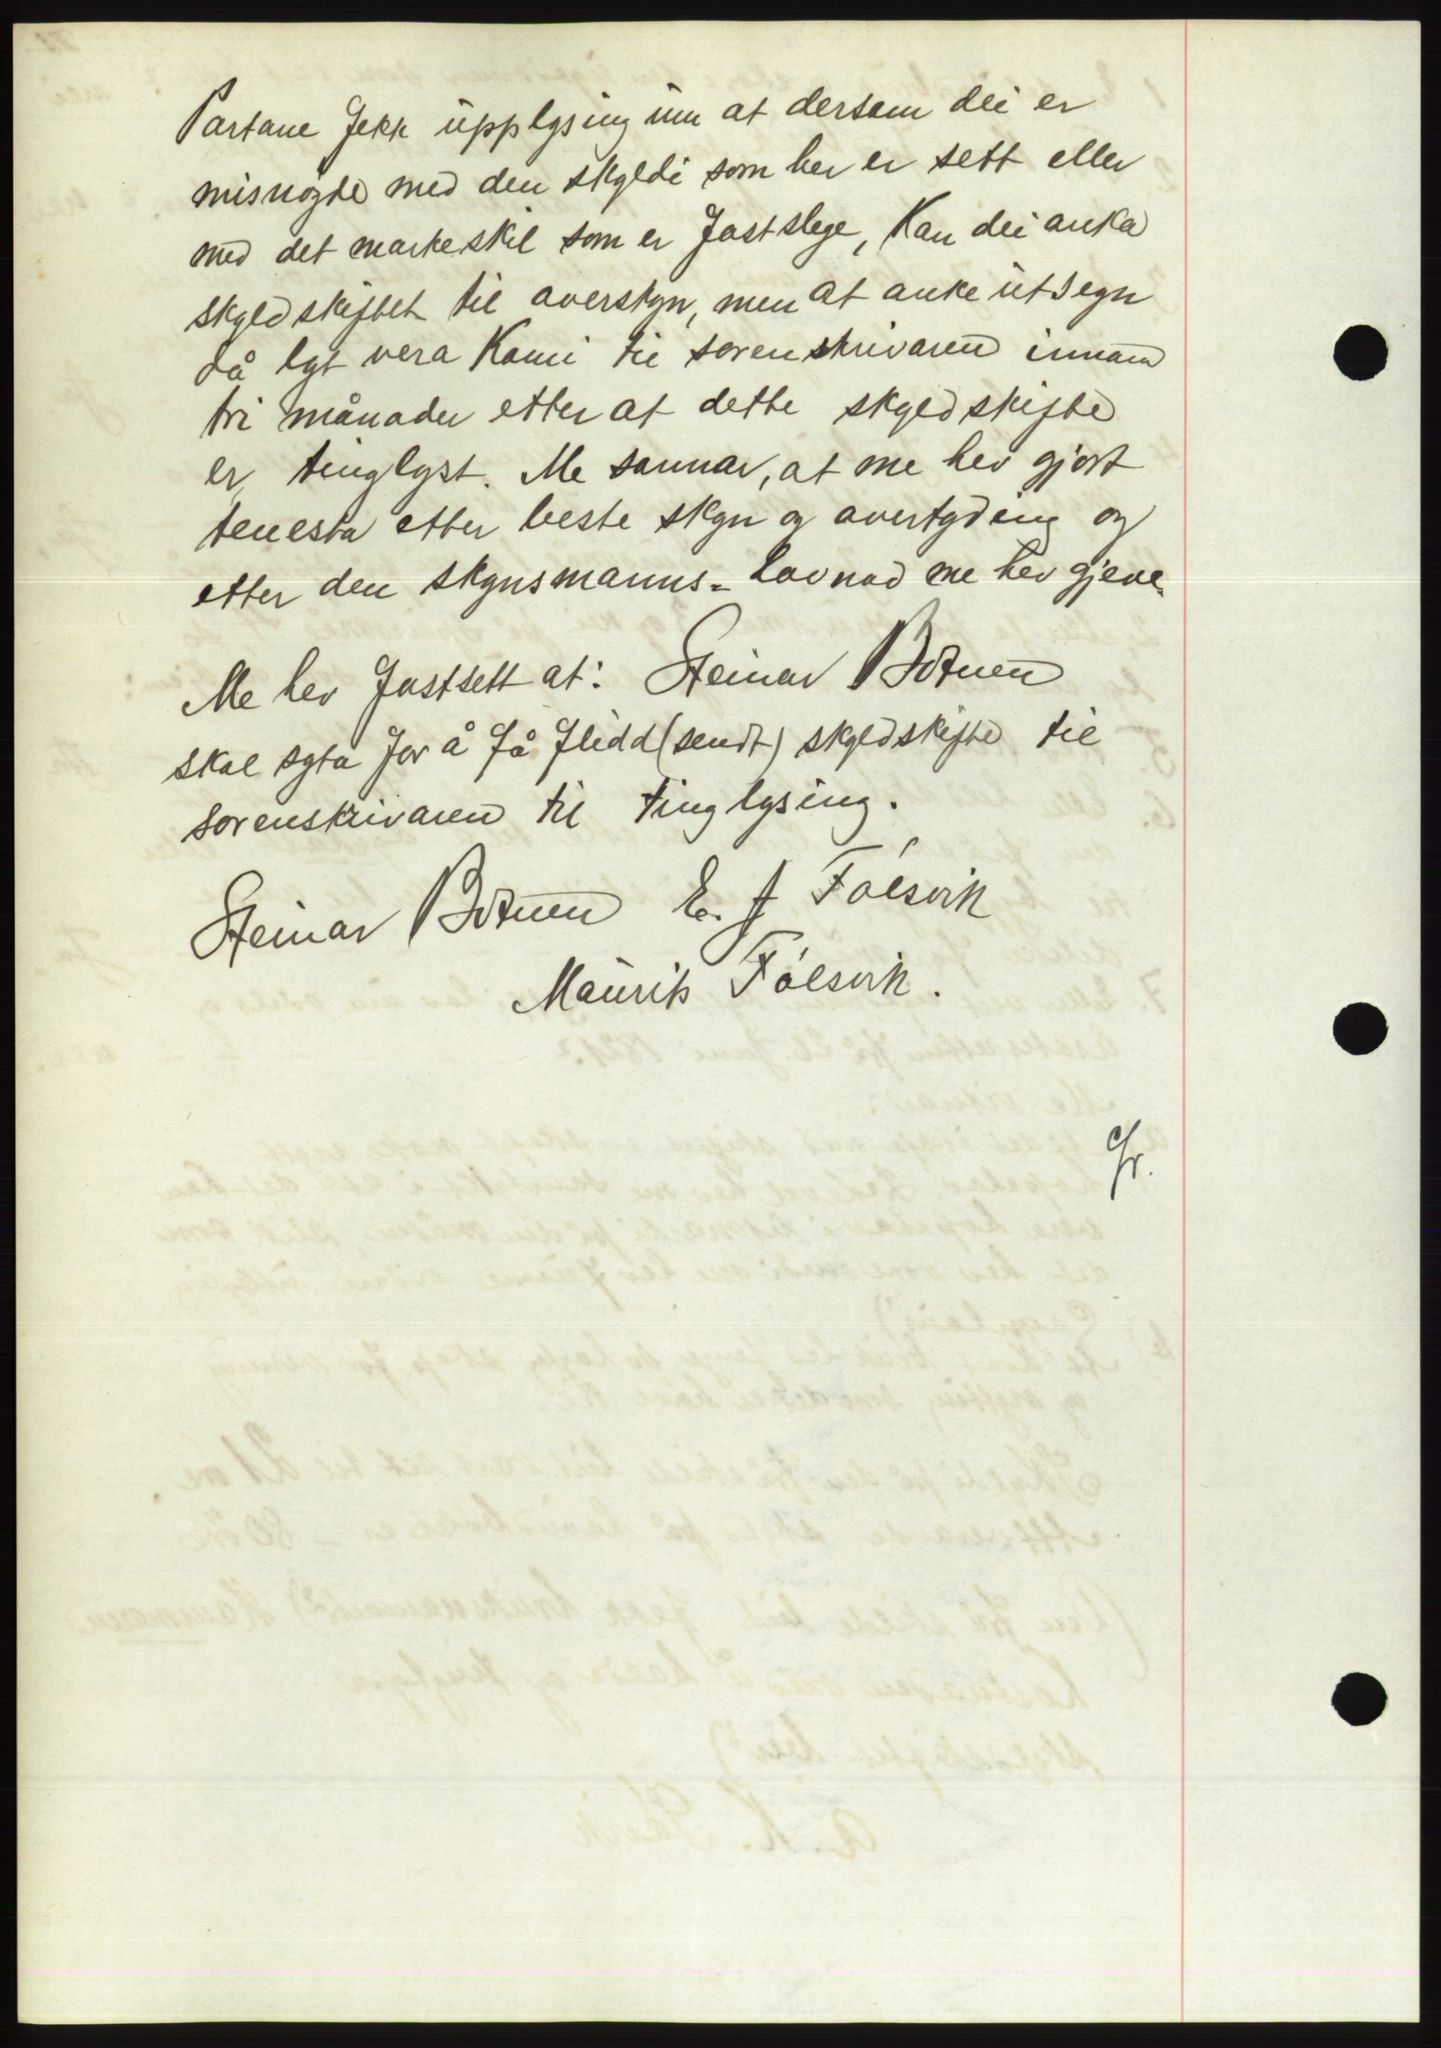 Partane fekk upplysing um at dersom dei er
misnøgde med den skyldi som her er sett eller
med det markeskil som er fastslege, kan dei anka
skyldskiftet til overskyn, men at anke utsegn
då lyt vera komi til sorenskrivaren innan
tri månader etter at dette skyldskifte
er tinglyst. Me sannar, at me hev gjort
tenesta etter beste skyn og overtyding og
etter den skynsmanns-lovnad me hev gjeve.
Me hev fastsett at: Steinar Botnen
skal syta for å få flidd (sendt) skyldskifte til
sorenskrivaren til tinglysing.
Steinar Botnen E. J Fólsvik
Maurits Fólsvik.